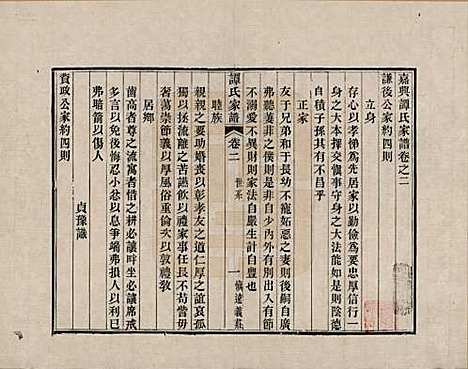 嘉興譚氏家譜卷之二
謙後公家約四則
立身
存心以孝悌為先居家以勤儉為要忠厚信行一
身之大本擇交愼事守身之大法能如是則陰德
自積子孫其有不昌乎
正家
友于兄弟和于長幼不寵妬惡之妻則後嗣自廣
弗聽姜非之僕則是非自少內外有別出入有節
不溺愛不異財則家法自嚴生計自豐也
譚氏家譜
卷二
世系
一
愼遠義莊
睦族
親親之要助婚喪以彰孝友之道仁厚之誼哀孤
獨以拯流離之苦讌飲以禮家事任長不苟訾毋
奢萬崇節義以厚風俗重倫次以敦禮敎
居鄉
齒高者遜之富者借之耕必讓畔坐必讓席戒
多言以免後悔忍小忿以息爭端弗損人以利己
弗暗箭以傷人
貞豫識
資政公家約四則